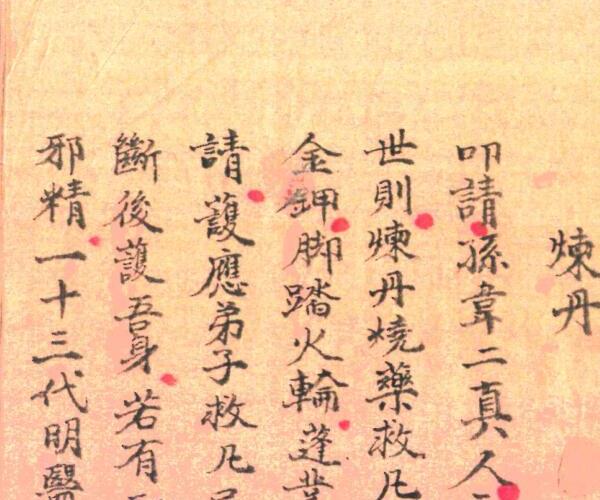 煉丹
叩請孫韋二真人
世則煉丹燒藥救凡
金鉀脚踏火輪蓬
請護應弟子救凡
斷後護吾身若有
邪精一十三代明醫